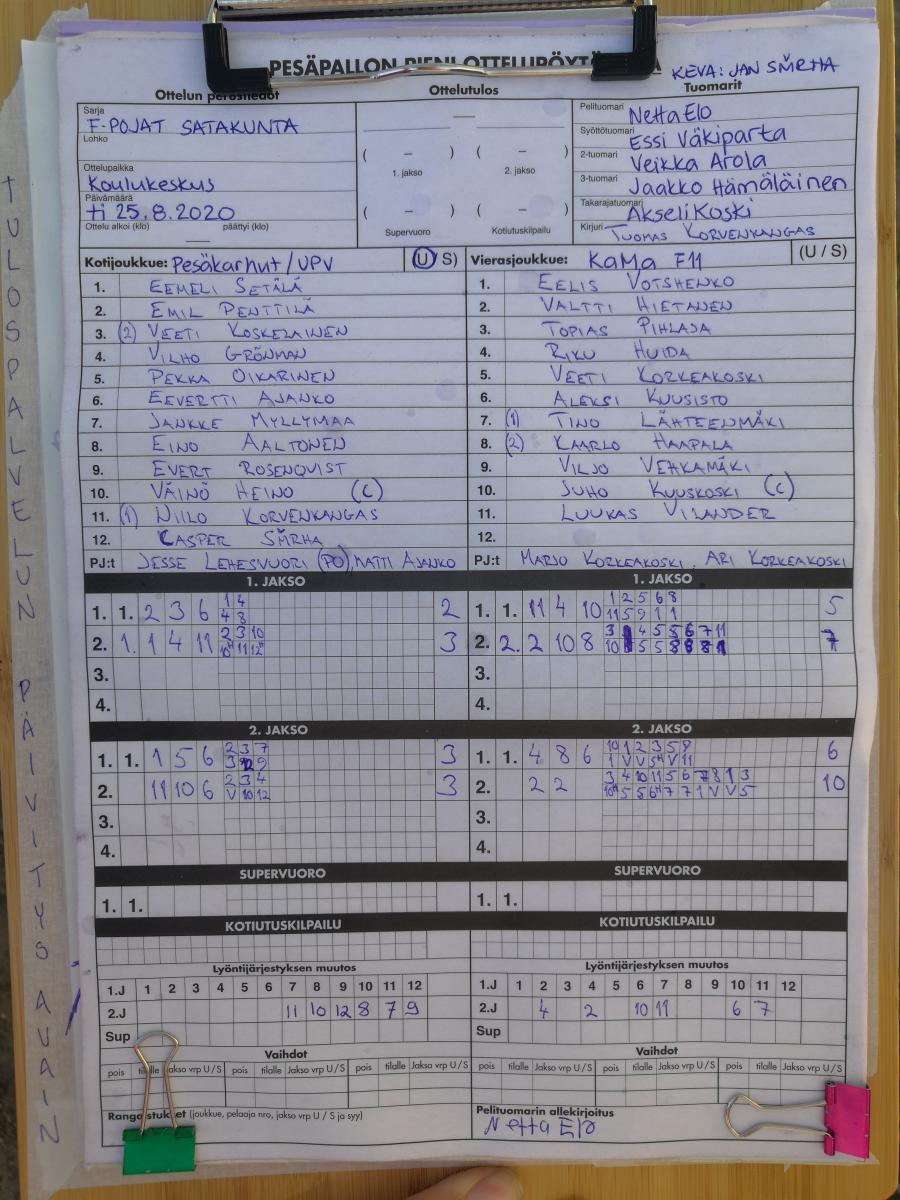 PESÄPALLON PIENI OTTELUPÖYTÄ
KEVA: JAN SMRHA
Ottelun perustiedot
Ottelutulos
Tuomarit
Sarja
F-POJAT SATAKUNTA
Lohko
Ottelupaikka
Koulukeskus
Päivämäärä
ti 25.8.2020
Ottelu alkoi (klo) — päättyi (klo)
—
( – ) ( – )
1. jakso 2. jakso
( – ) ( – )
Supervuoro Kotiutuskilpailu
Pelituomari Netta Elo
Syöttötuomari Essi Väkiparta
2-tuomari Veikka Arola
3-tuomari Jaakko Hämäläinen
Takarajatuomari Akseli Koski
Kirjuri TUOMAS KORVENKANGAS
Kotijoukkue: Pesäkarhut/UPV (U/S)
1. EEMELI SETÄLÄ
2. EMIL PENTTILÄ
3. (2) VEETI KOSKELAINEN
4. VILHO GRÖNMAN
5. PEKKA OIKARINEN
6. EEVERTTI AJANKO
7. JANKKE MYLLYMAA
8. EINO AALTONEN
9. EVERT ROSENQVIST
10. VÄINÖ HEINO (C)
11. (1) NIILO KORVENKANGAS
12. CASPER SMRHA
PJ:t JESSE LEHESVUORI (PO), MATTI AJANKO
Vierasjoukkue: KaMa F11 (U / S)
1. EELIS VOTSHENKO
2. VALTTI HIETANEN
3. TOPIAS PIHLAJA
4. RIKU HUIDA
5. VEETI KORKEAKOSKI
6. ALEKSI KUUSISTO
7. (1) TINO LÄHTEENMÄKI
8. (2) KAARLO HAAPALA
9. VILJO VEHKAMÄKI
10. JUHO KUUSKOSKI (C)
11. LUUKAS VILANDER
12.
PJ:t MARJO KORKEAKOSKI, ARI KORKEAKOSKI
1. JAKSO
1. 1. 2 3 6 1 4 2
4 8
2. 1. 1 4 11 2 3 10 3
3.
4.
1. JAKSO
1. 1. 11 4 10 1 2 5 6 8 5
11 5 9 1 1
2. 2. 2 10 8 7
3.
4.
2. JAKSO
1. 1. 1 5 6 2 3 7 3
2. 11 10 6 2 3 4 3
V 10 12
3.
4.
2. JAKSO
1. 1. 4 8 6 10 1 2 3 5 9 6
1 V V 5H V 11
2. 2 2 3 4 10 11 5 6 7 8 1 3 10
10H 5 5 6H 7 7 1 V V 5
3.
4.
SUPERVUORO
1. 1.
SUPERVUORO
1. 1.
KOTIUTUSKILPAILU
KOTIUTUSKILPAILU
Lyöntijärjestyksen muutos
1.J 1 2 3 4 5 6 7 8 9 10 11 12
2.J 11 10 12 8 7 9
Sup
Lyöntijärjestyksen muutos
1.J 1 2 3 4 5 6 7 8 9 10 11 12
2.J 4 2 10 11 6 7
Sup
Vaihdot
pois tilalle Jakso vrp U/S pois tilalle Jakso vrp U/S pois tilalle Jakso vrp U/S
Vaihdot
pois tilalle Jakso vrp U/S pois tilalle Jakso vrp U/S pois tilalle Jakso vrp U/S
Rangaistukset (joukkue, pelaaja nro, jakso vrp U/S ja syy)
Pelituomarin allekirjoitus
Netta Elo
TULOSPALVELUN PÄIVITYSAVAIN